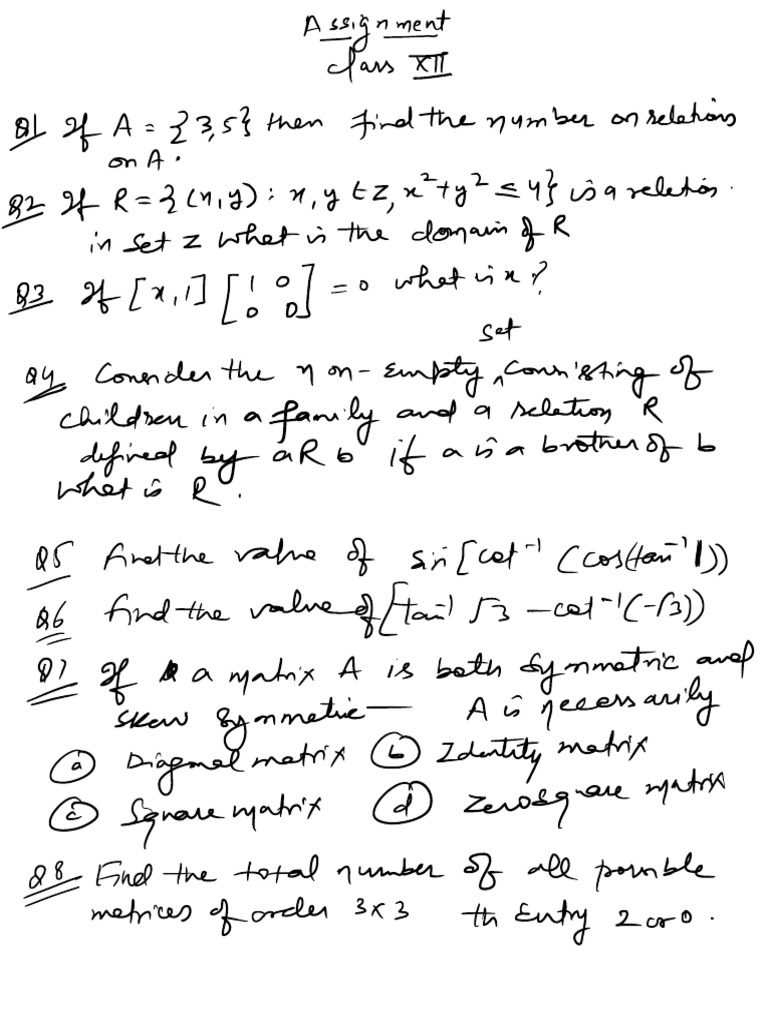 Assignment
Class XII
Q1 If A = {3,5} then find the number on relations
on A.
Q2 If R = {(x,y) : x, y ∈ Z, x² + y² ≤ 4} is a relation.
in set Z what is the domain of R
Q3 If [x,1] [1 0
0 0] = 0 what is x?
set
Q4 Consider the non-Empty ^ consisting of
children in a family and a relation R
defined by aRb if a is a brother of b
what is R.
Q5 find the value of sin[cot⁻¹(cos(tan⁻¹1))
Q6 find the value of [tan⁻¹ √3 - cot⁻¹(-√3))
Q7 If a matrix A is both symmetric and
skew symmetric — A is necessarily
(a) Diagonal matrix (b) Identity matrix
(c) Square matrix (d) Zero square matrix
Q8 Find the total number of all possible
matrices of order 3x3 th Entry 2 or 0.